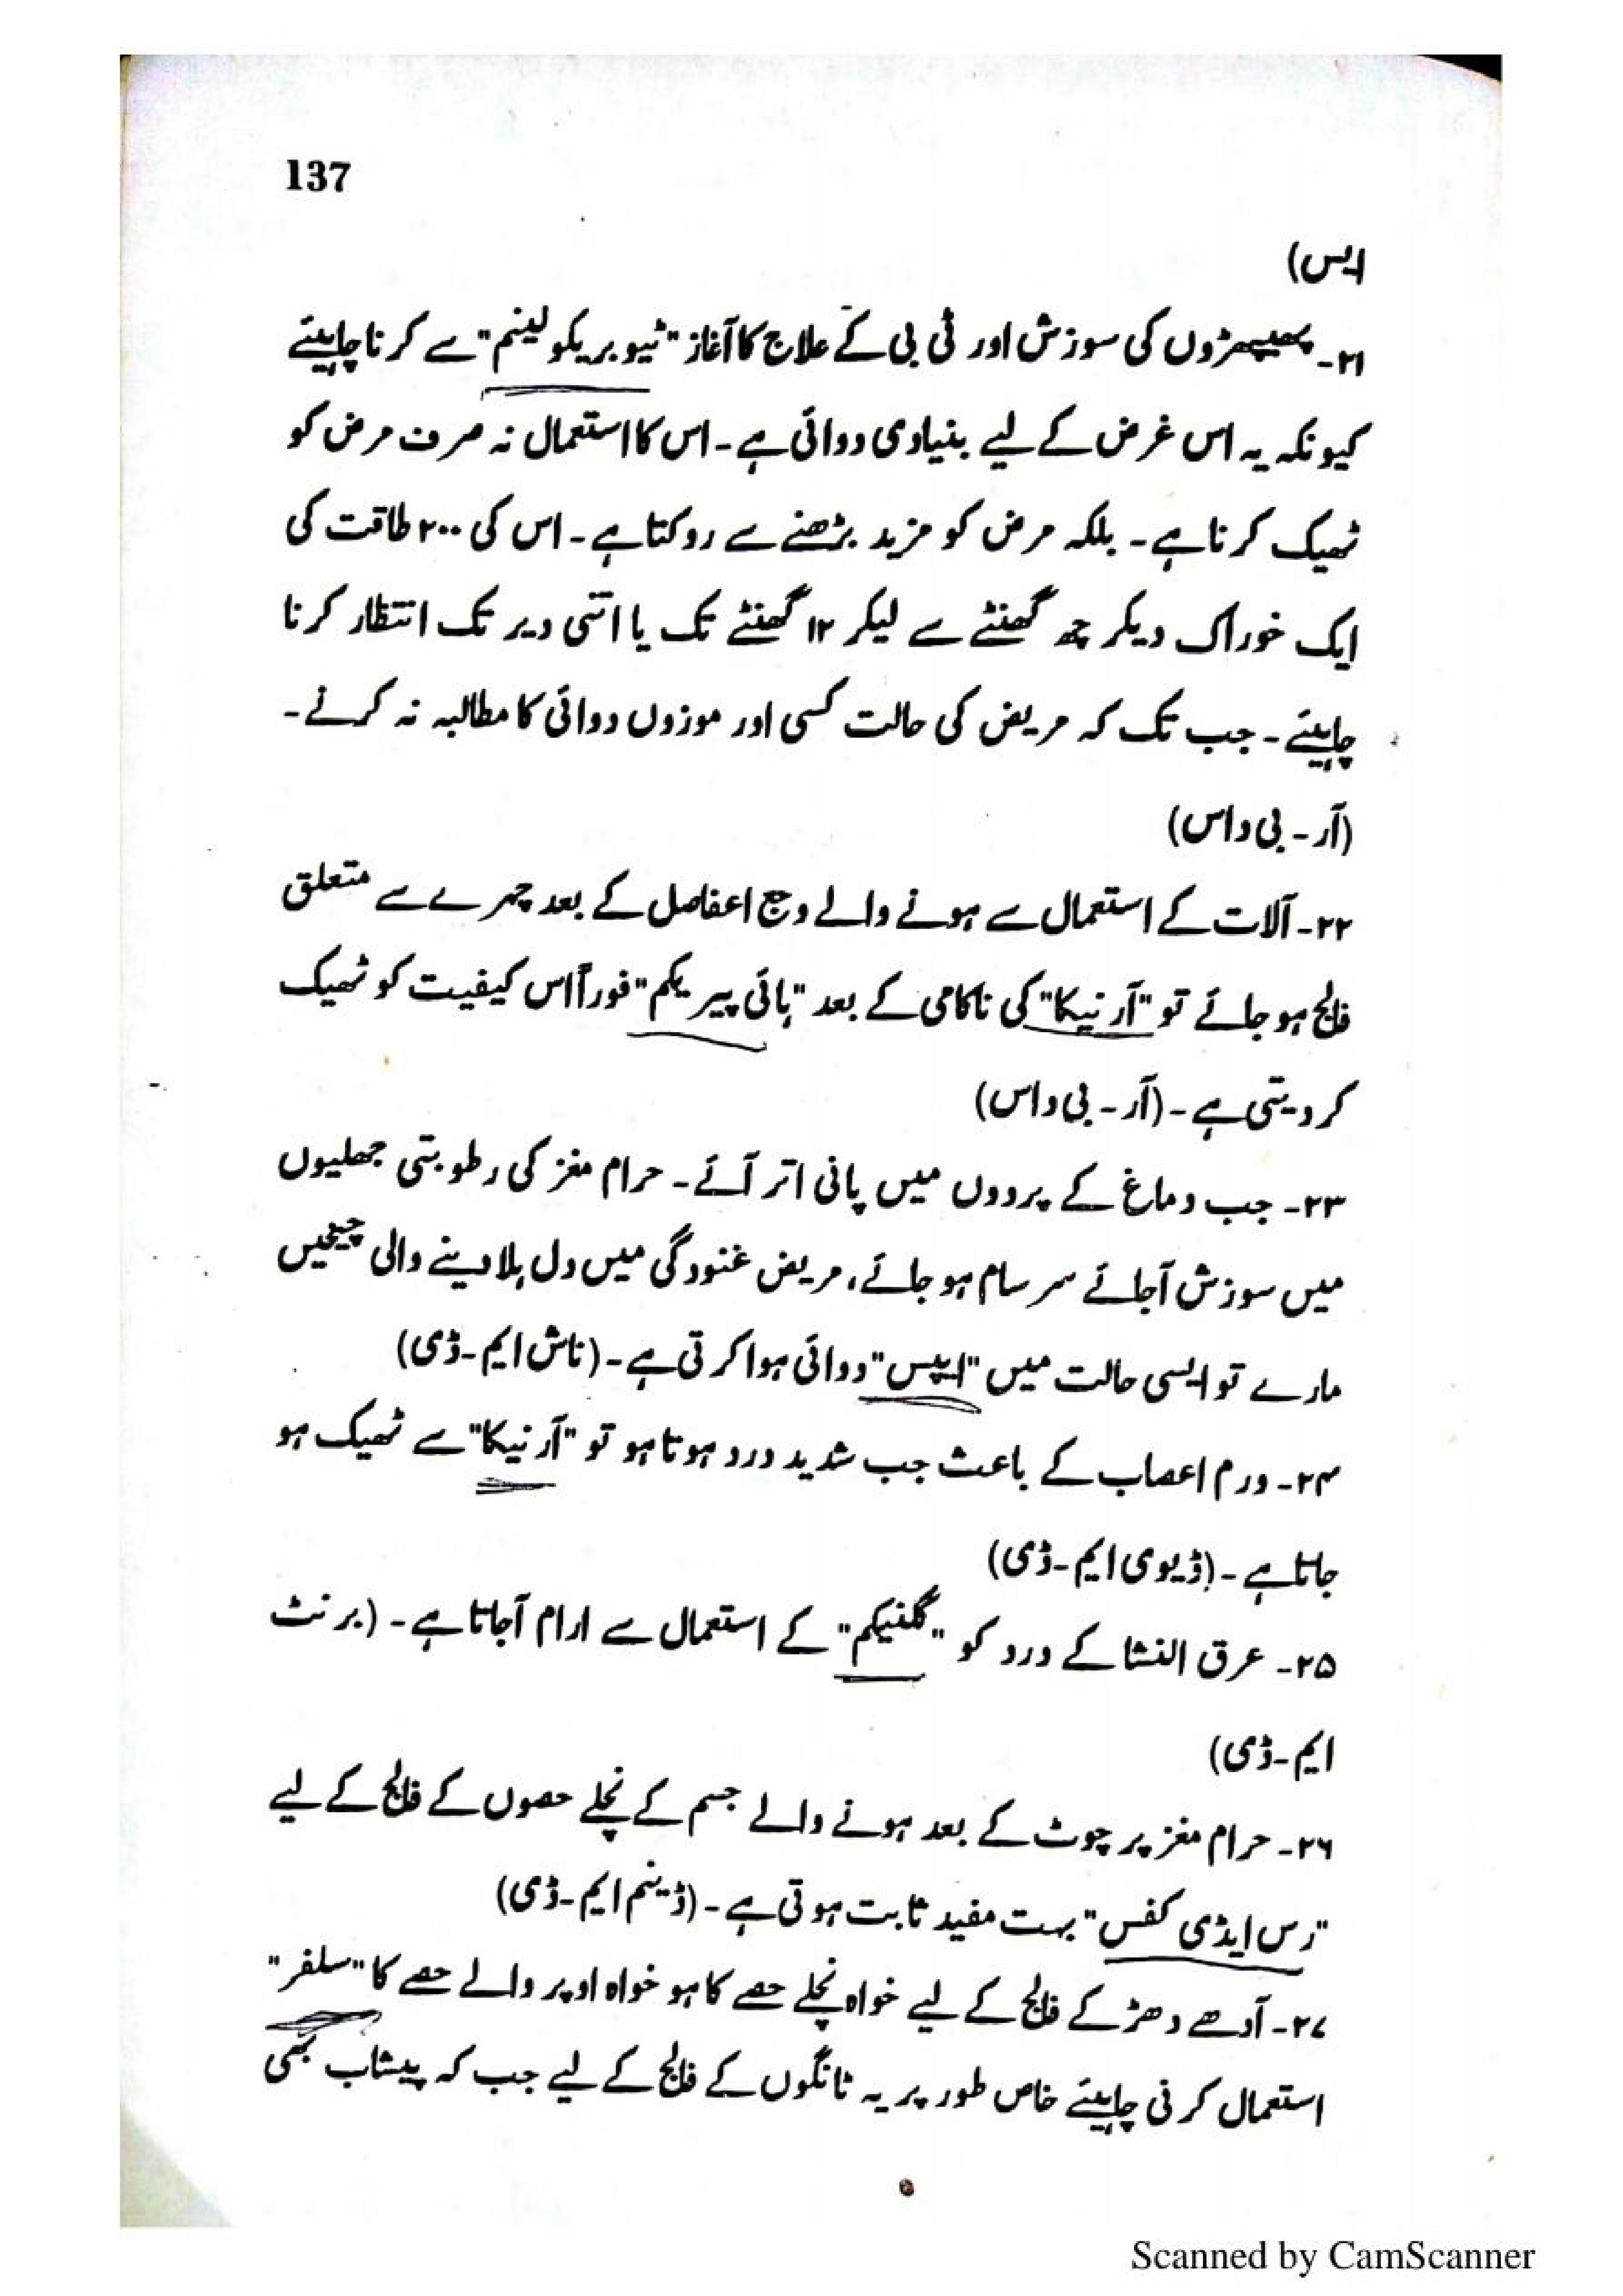 137
ایس)
۲۱۔ پھیپھڑوں کی سوزش اور ٹی بی کے علاج کا آغاز "ٹیوبریکولینم" سے کرنا چاہیئے
کیونکہ یہ اس غرض کے لیے بنیادی دوائی ہے۔ اس کا استعمال نہ صرف مرض کو
ٹھیک کرنا ہے۔ بلکہ مرض کو مزید بڑھنے سے روکتا ہے۔ اس کی ۲۰۰ طاقت کی
ایک خوراک دیکر چھ گھنٹے سے لیکر ۱۲ گھنٹے تک یا اتنی دیر تک انتظار کرنا
چاہیئے۔ جب تک کہ مریض کی حالت کسی اور موزوں دوائی کا مطالبہ نہ کرنے۔
(آر۔ بی داس)
۲۲۔ آلات کے استعمال سے ہونے والے وجع اعفاصل کے بعد چہرے سے متعلق
فالج ہو جائے تو "آرنیکا" کی ناکامی کے بعد "ہائی پیریکم" فوراً اس کیفیت کو ٹھیک
کر دیتی ہے۔ (آر۔ بی داس)
۲۳۔ جب دماغ کے پردوں میں پانی اتر آئے۔ حرام مغز کی رطوبتی جھلیوں
میں سوزش آجائے سرسام ہو جائے، مریض غنودگی میں دل ہلا دینے والی چیخیں
مارے تو ایسی حالت میں "ایپس" دوائی ہوا کرتی ہے۔ (ناش ایم۔ڈی)
۲۴۔ ورم اعصاب کے باعث جب شدید درد ہوتا ہو تو "آرنیکا" سے ٹھیک ہو
جاتا ہے۔ (ڈیوی ایم۔ڈی)
۲۵۔ عرق النشا کے درد کو "گلنیکم" کے استعمال سے ارام آجاتا ہے۔ (برنٹ
ایم۔ڈی)
۲۶۔ حرام مغز پر چوٹ کے بعد ہونے والے جسم کے نچلے حصوں کے فالج کے لیے
"رس ایڈی کفس" بہت مفید ثابت ہوتی ہے۔ (ڈینم ایم۔ڈی)
۲۷۔ آدھے دھڑ کے فالج کے لیے خواہ نچلے حصے کا ہو خواہ اوپر والے حصے کا "سلفر"
استعمال کرنی چاہیئے خاص طور پر یہ ٹانگوں کے فالج کے لیے جب کہ پیشاب بھی
Scanned by CamScanner